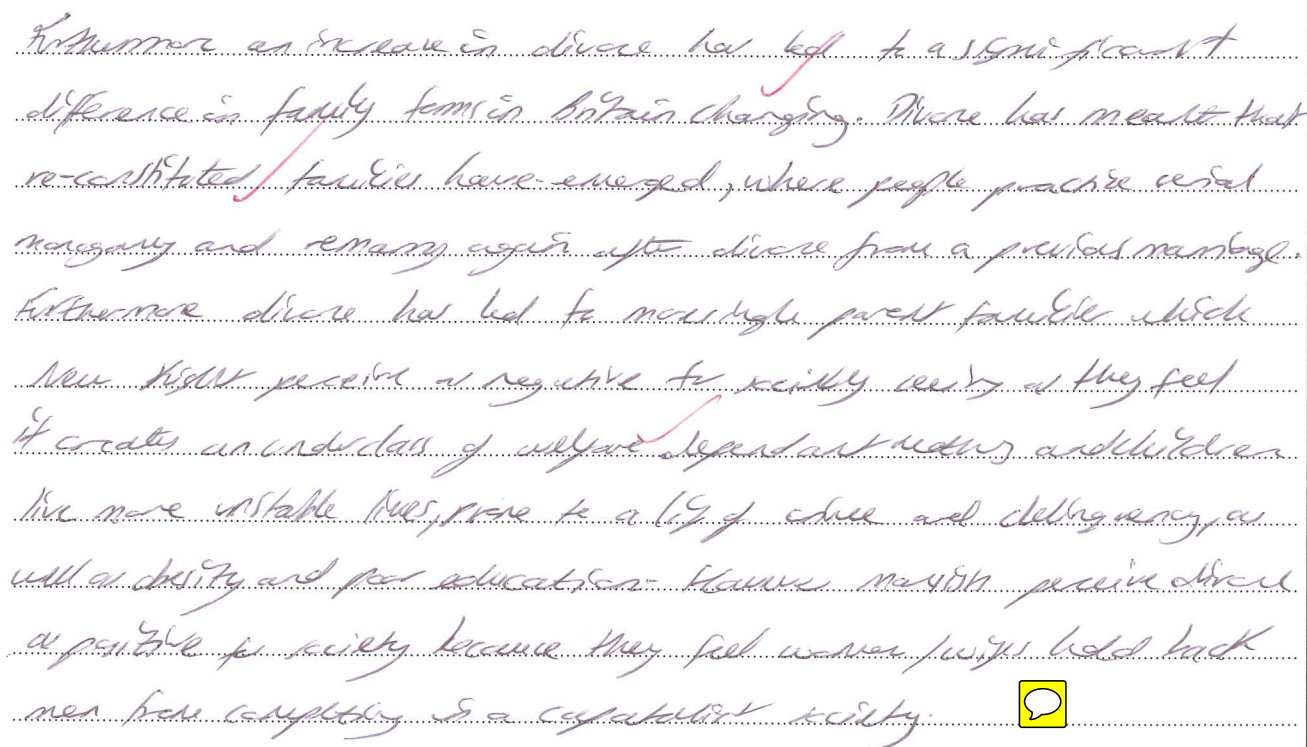 Furthermore an increase in divorce has led to a significant
difference in family forms in Britain changing. Divorce has meant that
re-constituted families have emerged, where people practice serial
monogamy and remarry again after divorce from a previous marriage.
Furthermore divorce has led to more single parent families which
New Right perceive as negative for society seeing as they feel
it creates an underclass of welfare dependant mothers and children
live more unstable lives, prone to a life of crime and delinquency, as
well as obesity and poor education. However marxists perceive divorce
as positive for society because they feel women / wives hold back
men from competing in a capatalist society.